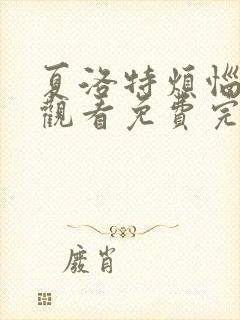 夏洛特煩惱
觀看免費完
廢肖